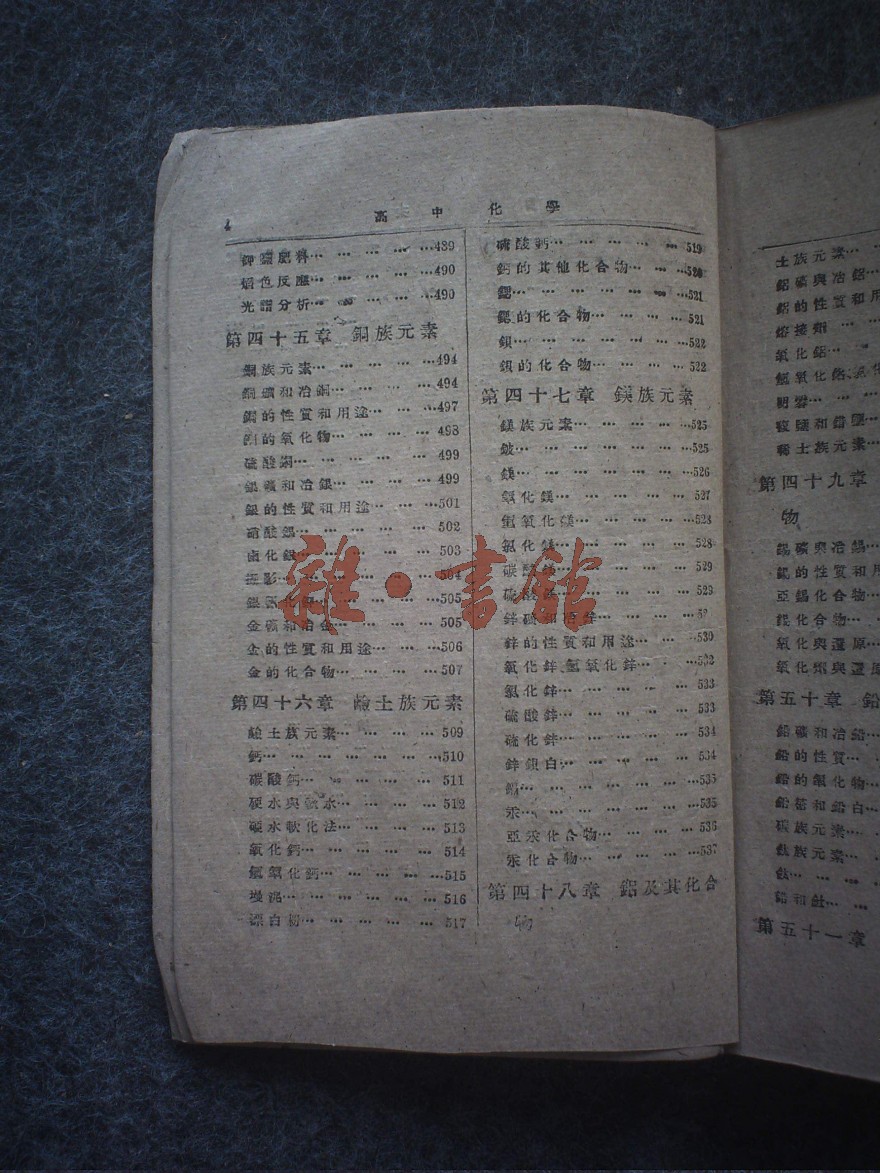 高中化學
鉀鹽肥料… … … … …489
焰色反應… … … … …490
光譜分析… … … … …490
第四十五章 銅族元素
銅族元素… … … … …494
銅礦和冶銅… … … … …494
銅的性質和用途… … … …497
銅的氧化物… … … … …498
硫酸銅… … … … … …499
銀礦和冶銀… … … … …499
銀的性質和用途… … … …501
硝酸銀… … … … … 502
鹵化銀… … … … … 503
攝影… … … … … …504
505
金礦和冶金… … … … …505
金的性質和用途… … … …506
金的化合物… … … … …507
第四十六章 鹼土族元素
鹼土族元素… … … … 509
鈣… … … … … … …510
碳酸鈣… … … … … 511
硬水與軟水… … … … …512
硬水軟化法… … … … …513
氧化鈣… … … … … …514
氫氧化鈣… … … … …515
墁泥… … … … … … 516
漂白粉… … … … … 517
硫酸鈣… … … … … …519
鈣的其他化合物… … … …520
鍶… … … … … … …521
鍶的化合物… … … … …521
鋇… … … … … … …522
鋇的化合物… … … … …522
第四十七章 鎂族元素
鎂族元素… … … … …525
鈹… … … … … … …525
鎂… … … … … … …526
氧化鎂… … … … … 527
氫氧化鎂… … … … …528
氯化鎂… … … … … 528
碳酸鎂… … … … … 529
硫酸鎂… … … … … 529
鋅礦和冶鋅… … … …
鋅的性質和用途… … … …530
氧化鋅氫氧化鋅… … … …532
氯化鋅… … … … … 533
硫酸鋅… … … … … 533
硫化鋅… … … … … 534
鋅鋇白… … … … … 534
鎘… … … … … … …535
汞… … … … … … …535
亞汞化合物… … … … 536
汞化合物… … … … …537
第四十八章 鋁及其化合
物
土族元素… …
鋁礦與冶鋁…
鋁的性質和用
熔接劑 …
氧化鋁… …
明礬… …
稀土族元素…
第四十九章
物
錫礦與冶錫…
錫的性質和用
亞錫化合物…
錫化合物…
氧化與還原…
氧化劑與還原
第五十章 鉛
鉛礦和冶鉛…
鉛的性質…
鉛的氧化物…
碳族元素…
鈦族元素…
鈦… …
鋯和釷… …
第五十一章
雜·書館